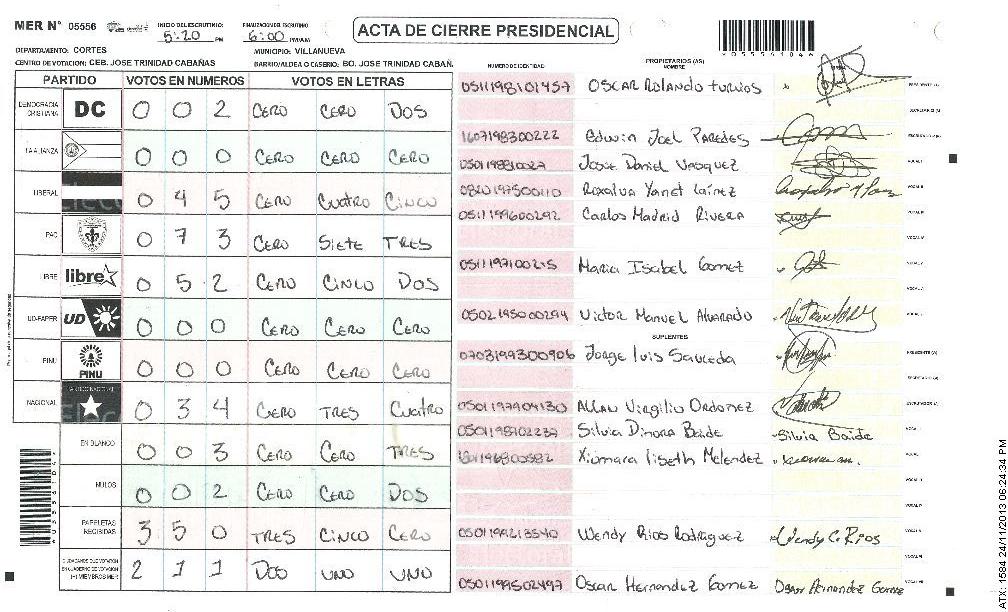 MER Nº 05556
INICIO DEL ESCRUTINIO 5:20 PM
FINALIZACION DEL ESCRUTINIO 6:00 PM/AM
ACTA DE CIERRE PRESIDENCIAL
DEPARTAMENTO: CORTES
MUNICIPIO: VILLANUEVA
CENTRO DE VOTACION: CEB. JOSE TRINIDAD CABAÑAS
BARRIO/ALDEA O CASERIO: BO. JOSE TRINIDAD CABAÑ.
PARTIDO VOTOS EN NUMEROS VOTOS EN LETRAS
DEMOCRACIA CRISTIANA DC 0 0 2 CERO CERO DOS
LA ALIANZA 0 0 0 CERO CERO CERO
LIBERAL 0 4 5 CERO CUATRO CINCO
PAC 0 7 3 CERO SIETE TRES
LIBRE libre 0 5 2 CERO CINCO DOS
UD-FAPER UD 0 0 0 CERO CERO CERO
PINU PINU 0 0 0 CERO CERO CERO
NACIONAL PARTIDO NACIONAL 0 3 4 CERO TRES CUATRO
EN BLANCO 0 0 3 CERO CERO TRES
NULOS 0 0 2 CERO CERO DOS
PAPELETAS RECIBIDAS 3 5 0 TRES CINCO CERO
CIUDADANOS QUE VOTARON EN CUADERNO DE VOTACION (+) MIEMBROS MER 2 1 1 DOS UNO UNO
NUMERO DE IDENTIDAD
PROPIETARIOS (AS)
NOMBRE
0511198101457 OSCAR Rolando turcios
1607198300222 Edwin Joel Paredes
Josse Daniel Vasquez
Roxalva Yanet Laínez
0511199600292 Carlos Madrid Rivera
0511197100215 Maria Isabel Gomez
0502195000294 Victor Manuel Alvarado
SUPLENTES
0703199300906 Jorge luis Sauceda
0501197904130 Allan Virgilio Ordoñez
0501198702237 Silvia Dinora Baide Silvia Baide
Xiomara liseth Melendez
0501199213540 Wendy Rios Rodriguez Wendy C. Rios
0501199502497 Oscar Hernandez Gomez Oscar Hernandez Gomez
ATX: 1584 24/11/2013 06:24:34 PM